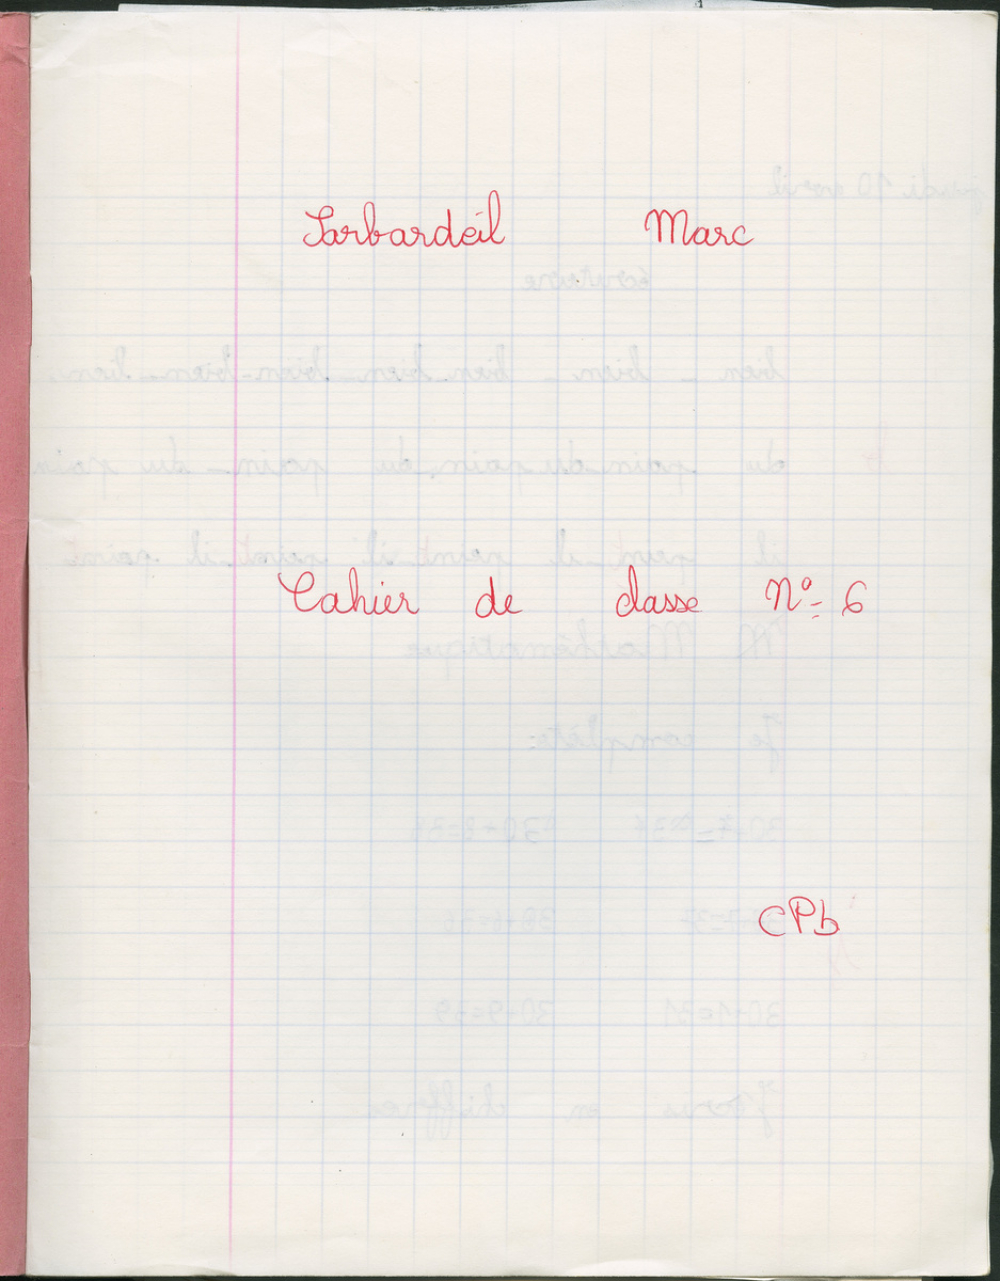 Sarbardeil Marc
Cahier de classe N° 6
CPb